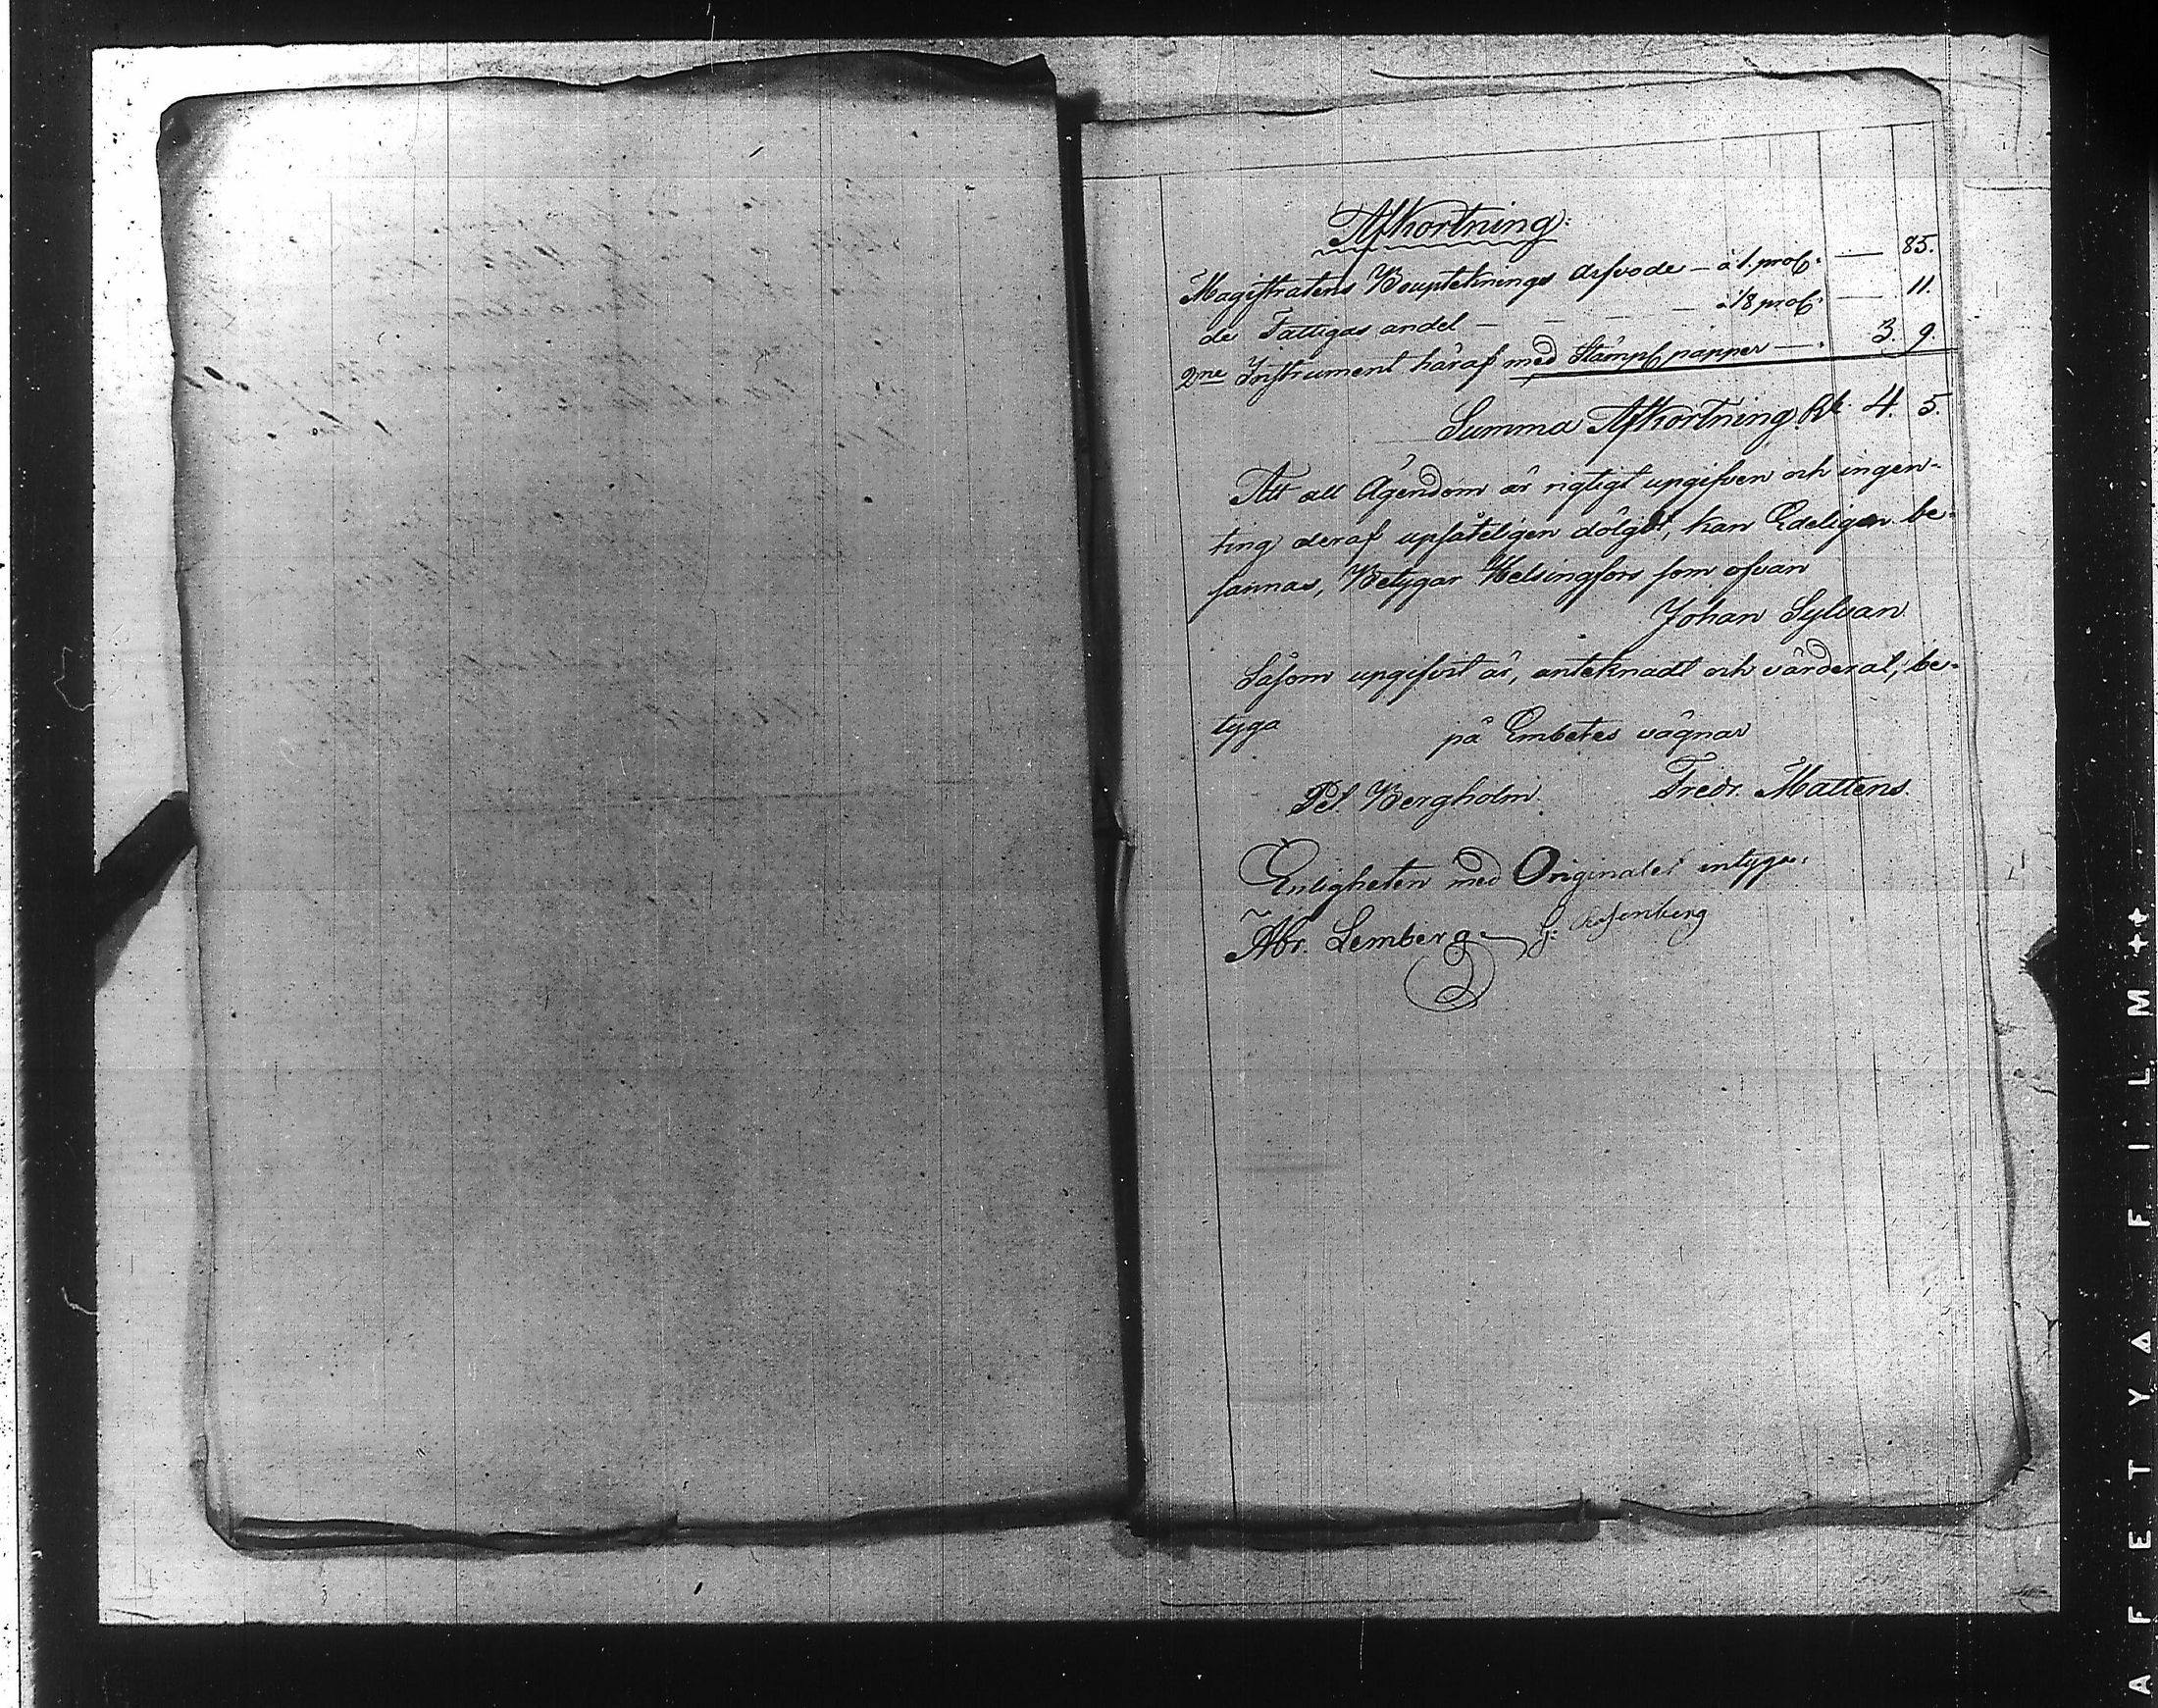 Afkortning:
Magistratens Boupteknings Arfvode — à 1. proC. — 85.
de Fattigas andel — — — — à 1/8 proC. — 11.
2ne Instrument häraf med Stämpl. papper — . 3. 9.
Summa Afkortning Rb. 4. 5.
Att all Ägendom är rigtigt upgifven och ingen-
ting deraf upsåteligen dölgdt, kan Edeligen be-
sannas, Betygar Helsingfors som ofvan
Johan Sylvan
Såsom upgifvit är, anteknadt och värderat, be-
tyga
på Embetes vägnar
Pet. Bergholm. Fredr. Mattens.
Enligheten med Originalet intyga:
Abr. Lemberg. G: Rosenberg
AFETYA FILM ++